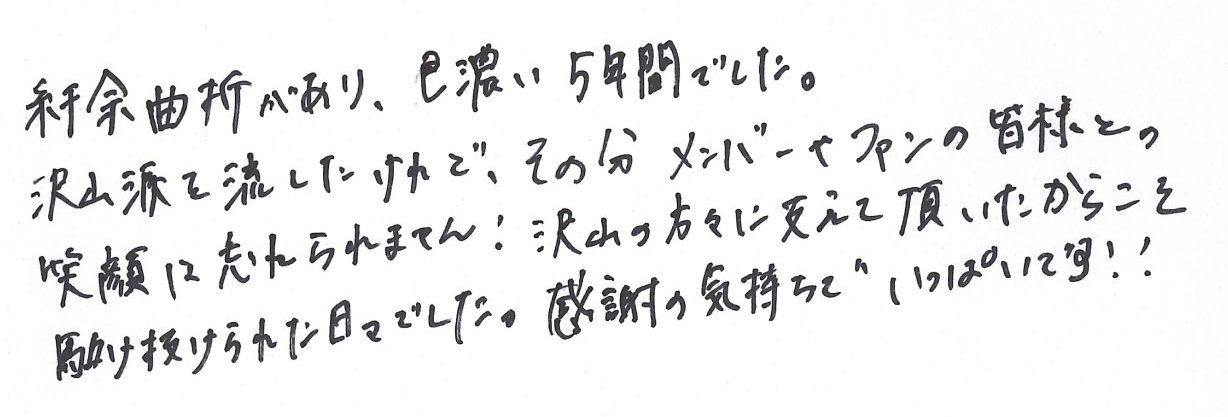 紆余曲折があり、色濃い5年間でした。
沢山涙を流したけれど、その分メンバーやファンの皆様との
笑顔は忘れられません!沢山の方々に支えて頂いたからこそ
駆け抜けられた日々でした。感謝の気持ちでいっぱいです!!